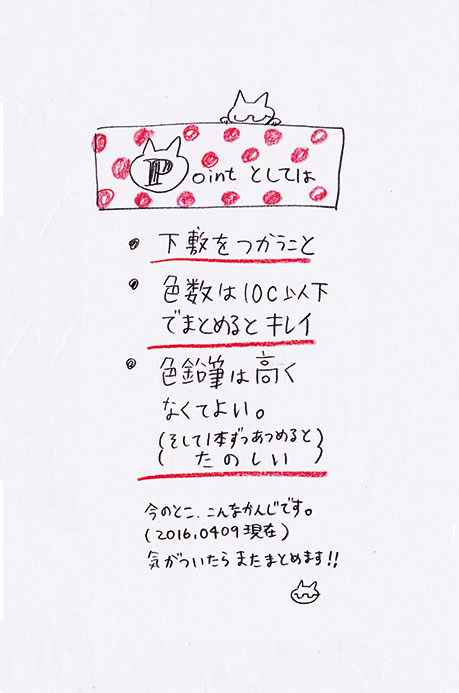 Pointとしては
• 下敷をつかうこと
• 色数は10C以下
でまとめるとキレイ
• 色鉛筆は高く
なくてよい。
(そして1本ずつあつめると)
(たのしい)
今のとこ、こんなかんじです。
(2016.0409現在)
気がついたらまたまとめます!!